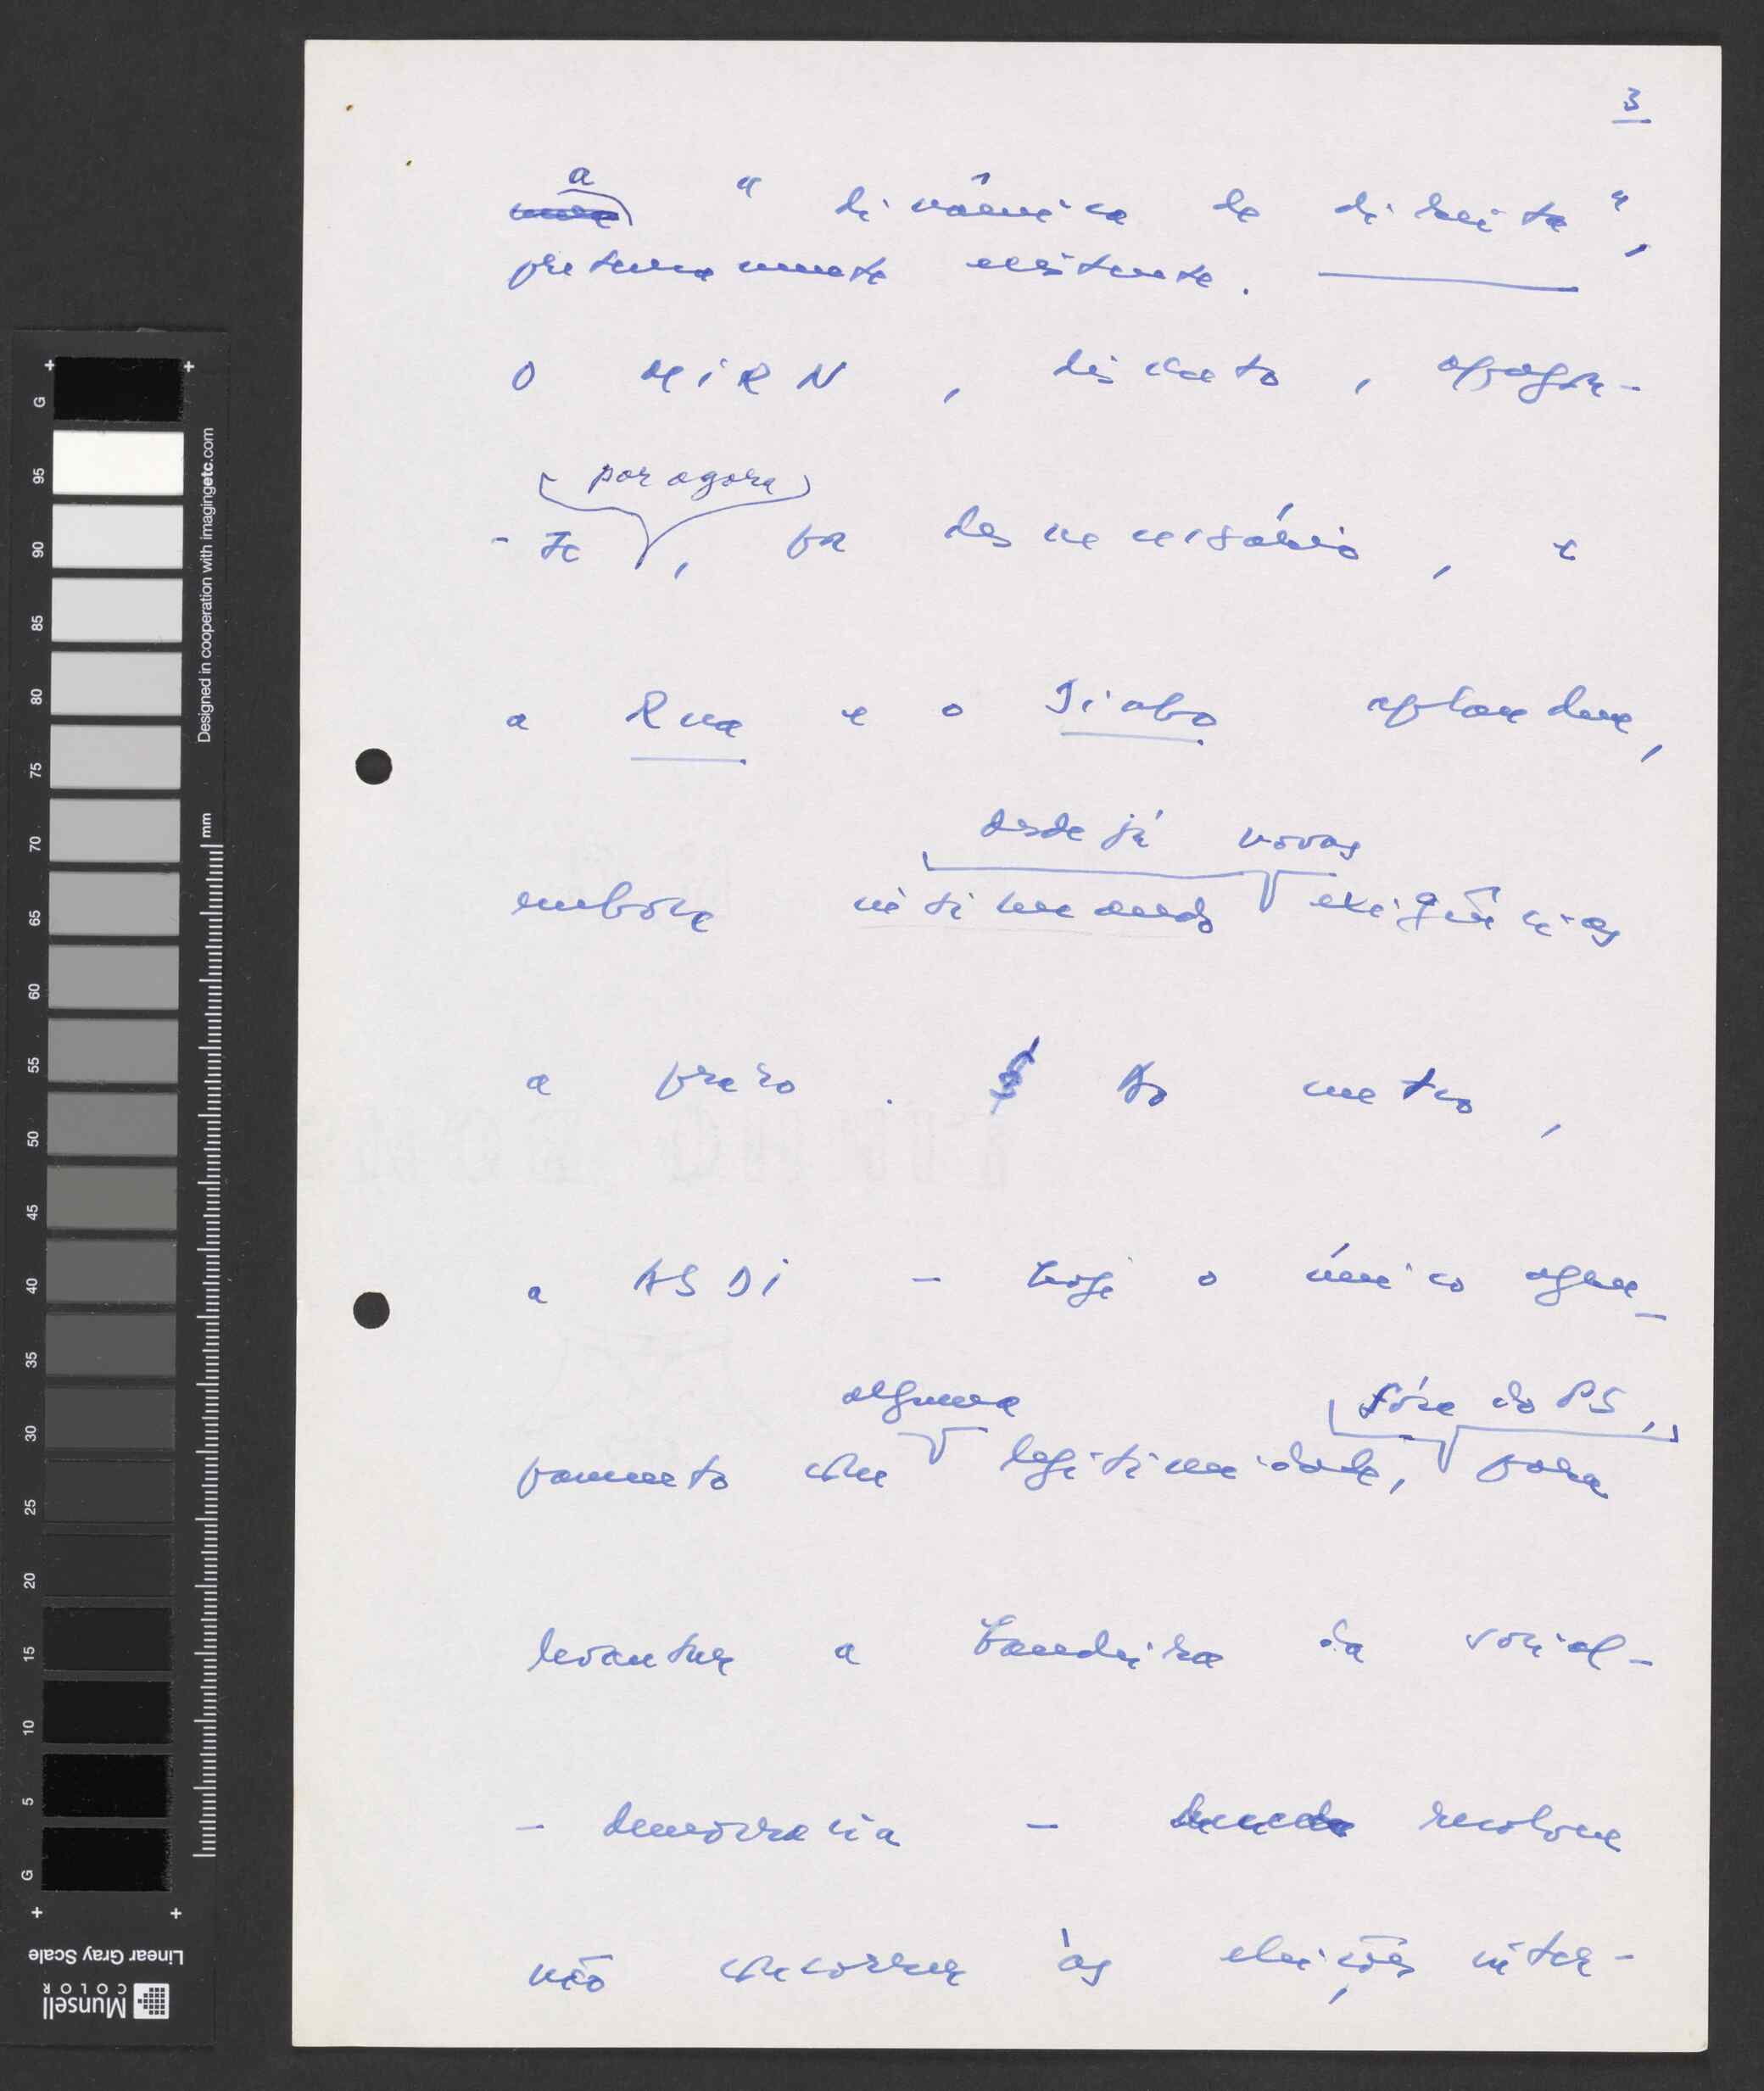 3
a
"dinâmica de direita",
pretensamente existente.
O MIRN, discreto, apaga-
por agora
-se, por desnecessário, e
a Rua e o Diabo aplaudem,
desde já novas
embora intimando exigências
a prazo. Ao centro,
a ASDI - hoje o único agru-
alguma fóra do PS,
pamento com legitimidade, para
levantar a bandeira da social-
- democracia - resolveu
não concorrer às eleições inter-
Designed in cooperation with imagingetc.com
mm
G
95
90
85
80
75
70
65
60
55
50
45
40
35
30
25
20
15
10
5
G
Linear Gray Scale
Munsell
COLOR